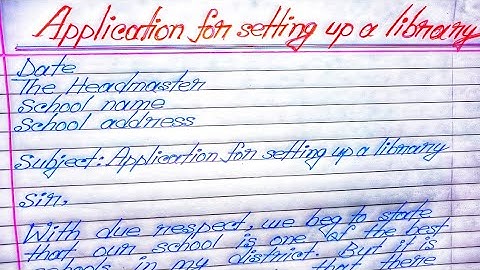 Application for setting up a library
Date
The Headmaster
School name
School address
Subject: Application for setting up a library
Sir,
With due respect, we beg to state
that our school is one of the best
schools in my district. But it is
that there